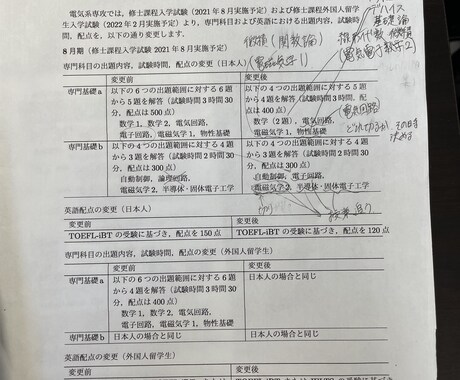 電気系専攻では，修士課程入学試験（2021 年 8 月実施予定）および修士課程外国人留学
生入学試験（2022 年 2 月実施予定）より，専門科目および英語における出題内容，試験時
間，配点を，以下の通り変更します．
8 月期（修士課程入学試験 2021 年 8 月実施予定）
専門科目の出題内容，試験時間，配点の変更（日本人）
変更前 変更後
専門基礎 a
以下の 6 つの出題範囲に対する 6 題
から 5 題を解答（試験時間 3 時間 30
分，配点は 500 点）
数学 1，数学 2，電気回路，
電子回路，電磁気学 1，物性基礎
以下の 4 つの出題範囲に対する 5
題から 4 題を解答（試験時間 3 時
間，配点は 400 点）
数学（2 題），電気回路，
電磁気学 1，物性基礎
専門基礎 b
以下の 4 つの出題範囲に対する 4 題
から 3 題を解答（試験時間 2 時間 30
分，配点は 300 点）
自動制御，論理回路，
電磁気学 2，半導体・固体電子工学
以下の 4 つの出題範囲に対する 4
題から 3 題を解答（試験時間 2 時
間 30 分，配点は 300 点）
自動制御，電子回路，
電磁気学 2，半導体・固体電子工学
英語配点の変更（日本人）
変更前 変更後
TOEFL-iBT の受験に基づき，配点を 150 点 TOEFL-iBT の受験に基づき，配点を 120 点
専門科目の出題内容，試験時間，配点の変更（外国人留学生）
変更前 変更後
専門基礎 a
以下の 6 つの出題範囲に対する 6 題
から 4 題を解答（試験時間 3 時間 30
分，配点は 400 点）
数学 1，数学 2，電気回路，
電子回路，電磁気学 1，物性基礎
日本人の場合と同じ
専門基礎 b 日本人の場合と同じ 日本人の場合と同じ
英語配点の変更（外国人留学生）
変更前 変更後
微積（関数論）
（電気電子数学 2）
デバイス
基礎論
（電気回路）